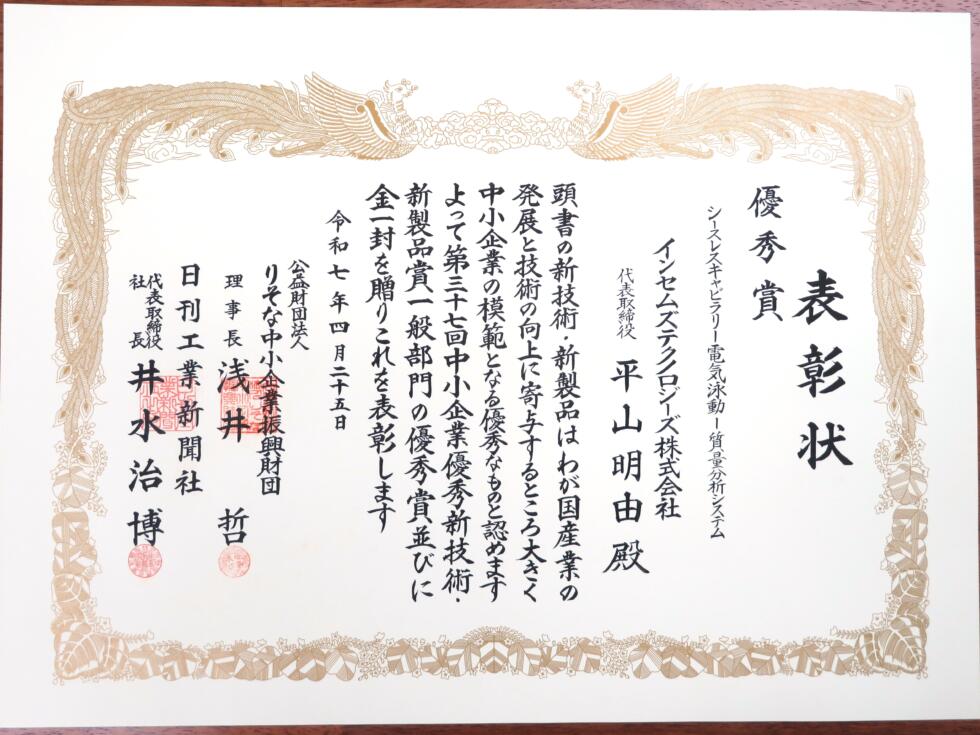 表彰状
優秀賞
シースレスキャピラリー電気泳動ー質量分析システム
インセムズテクノロジーズ株式会社
代表取締役 平山明由殿
頭書の新技術・新製品はわが国産業の
発展と技術の向上に寄与するところ大きく
中小企業の模範となる優秀なものと認めます
よって第三十七回中小企業優秀新技術・
新製品賞一般部門の優秀賞並びに
金一封を贈りこれを表彰します
令和七年四月二十五日
公益財団法人
りそな中小企業振興財団
理事長 浅井哲
日刊工業新聞社
代表取締役社長 井水治博